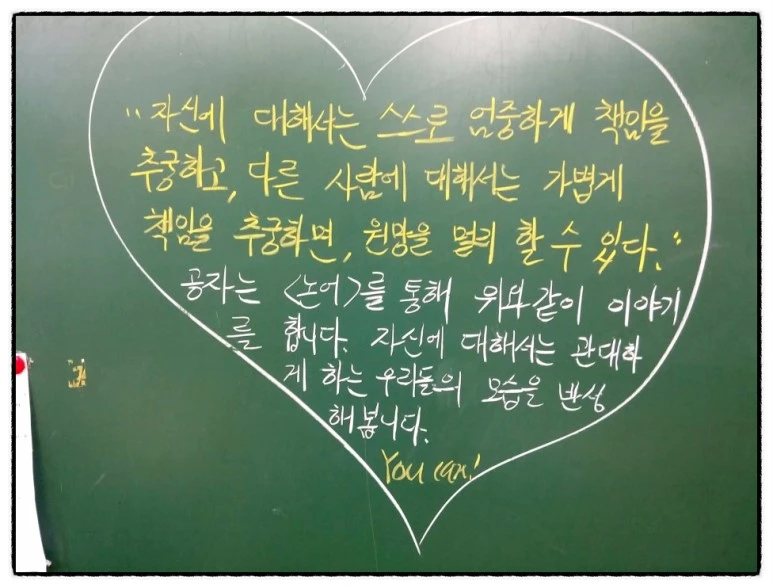 "자신에 대해서는 스스로 엄중하게 책임을
추궁하고, 다른 사람에 대해서는 가볍게
책임을 추궁하면, 원망을 멀리 할 수 있다."
공자는 <논어>를 통해 위와 같이 이야기
를 합니다. 자신에 대해서는 관대하
게 하는 우리들의 모습을 반성
해봅니다.
You can!